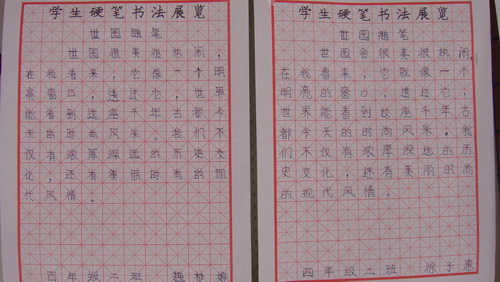 学生硬笔书法展览
世园随笔
世园很美很热闹，
在我看来，它像一个明
亮窗口，透过它，世界
能看到这座千年古都今
天的时尚风采，我们不
仅有浓厚深远的历史文
化，还有美丽时尚的现
代风情。
四年级二班
学生硬笔书法展览
世园随笔
世园会很美很热闹，
在我看来，它就像一个
明亮的窗口，透过它，
世界能看到这座千年古
都今天的时尚风采，我
们不仅有浓厚深远的历
史文化，还有美丽的时尚
的现代风情。
四年级二班 徐子惠